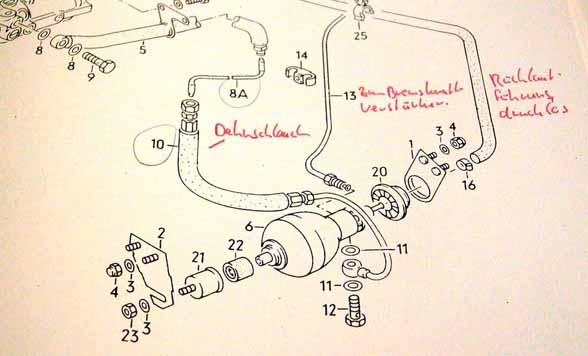 25
8
5
8
9
8A
14
13
Zum Bremskraft
verstärker.
Rücklauf
führung
drucklos
10
Dehnschlauch
3
4
1
16
20
6
2
11
21
22
4
3
11
12
23
3